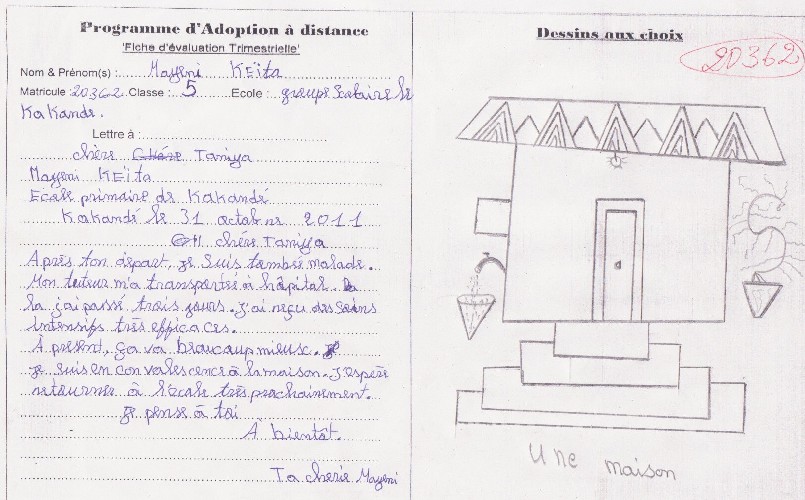 Programme d'Adoption à distance
'Fiche d'évaluation Trimestrielle'
Nom & Prénom(s) : Mayeni KEïta
Matricule : 20362 Classe : 5 Ecole : groupe Scolaire de
Kakande.
Lettre à :
chère Chére Taniya
Mayeni KEïta
Ecole primaire de Kakandé
Kakandé le 31 octobre 2011
chére Taniya
Après ton départ, je suis tombé malade.
Mon tuteur m'a transportée à hôpital
la j'ai passé trois jours. J'ai reçu des soins
intensifs très efficaces.
À présent, ça va beaucoup mieux.
je suis en convalescence à la maison. J'espère
retourner à l'école très prochainement.
Je pense à toi
À bientôt.
Ta cherie Mayeni
Dessins aux choix
20362
Une maison